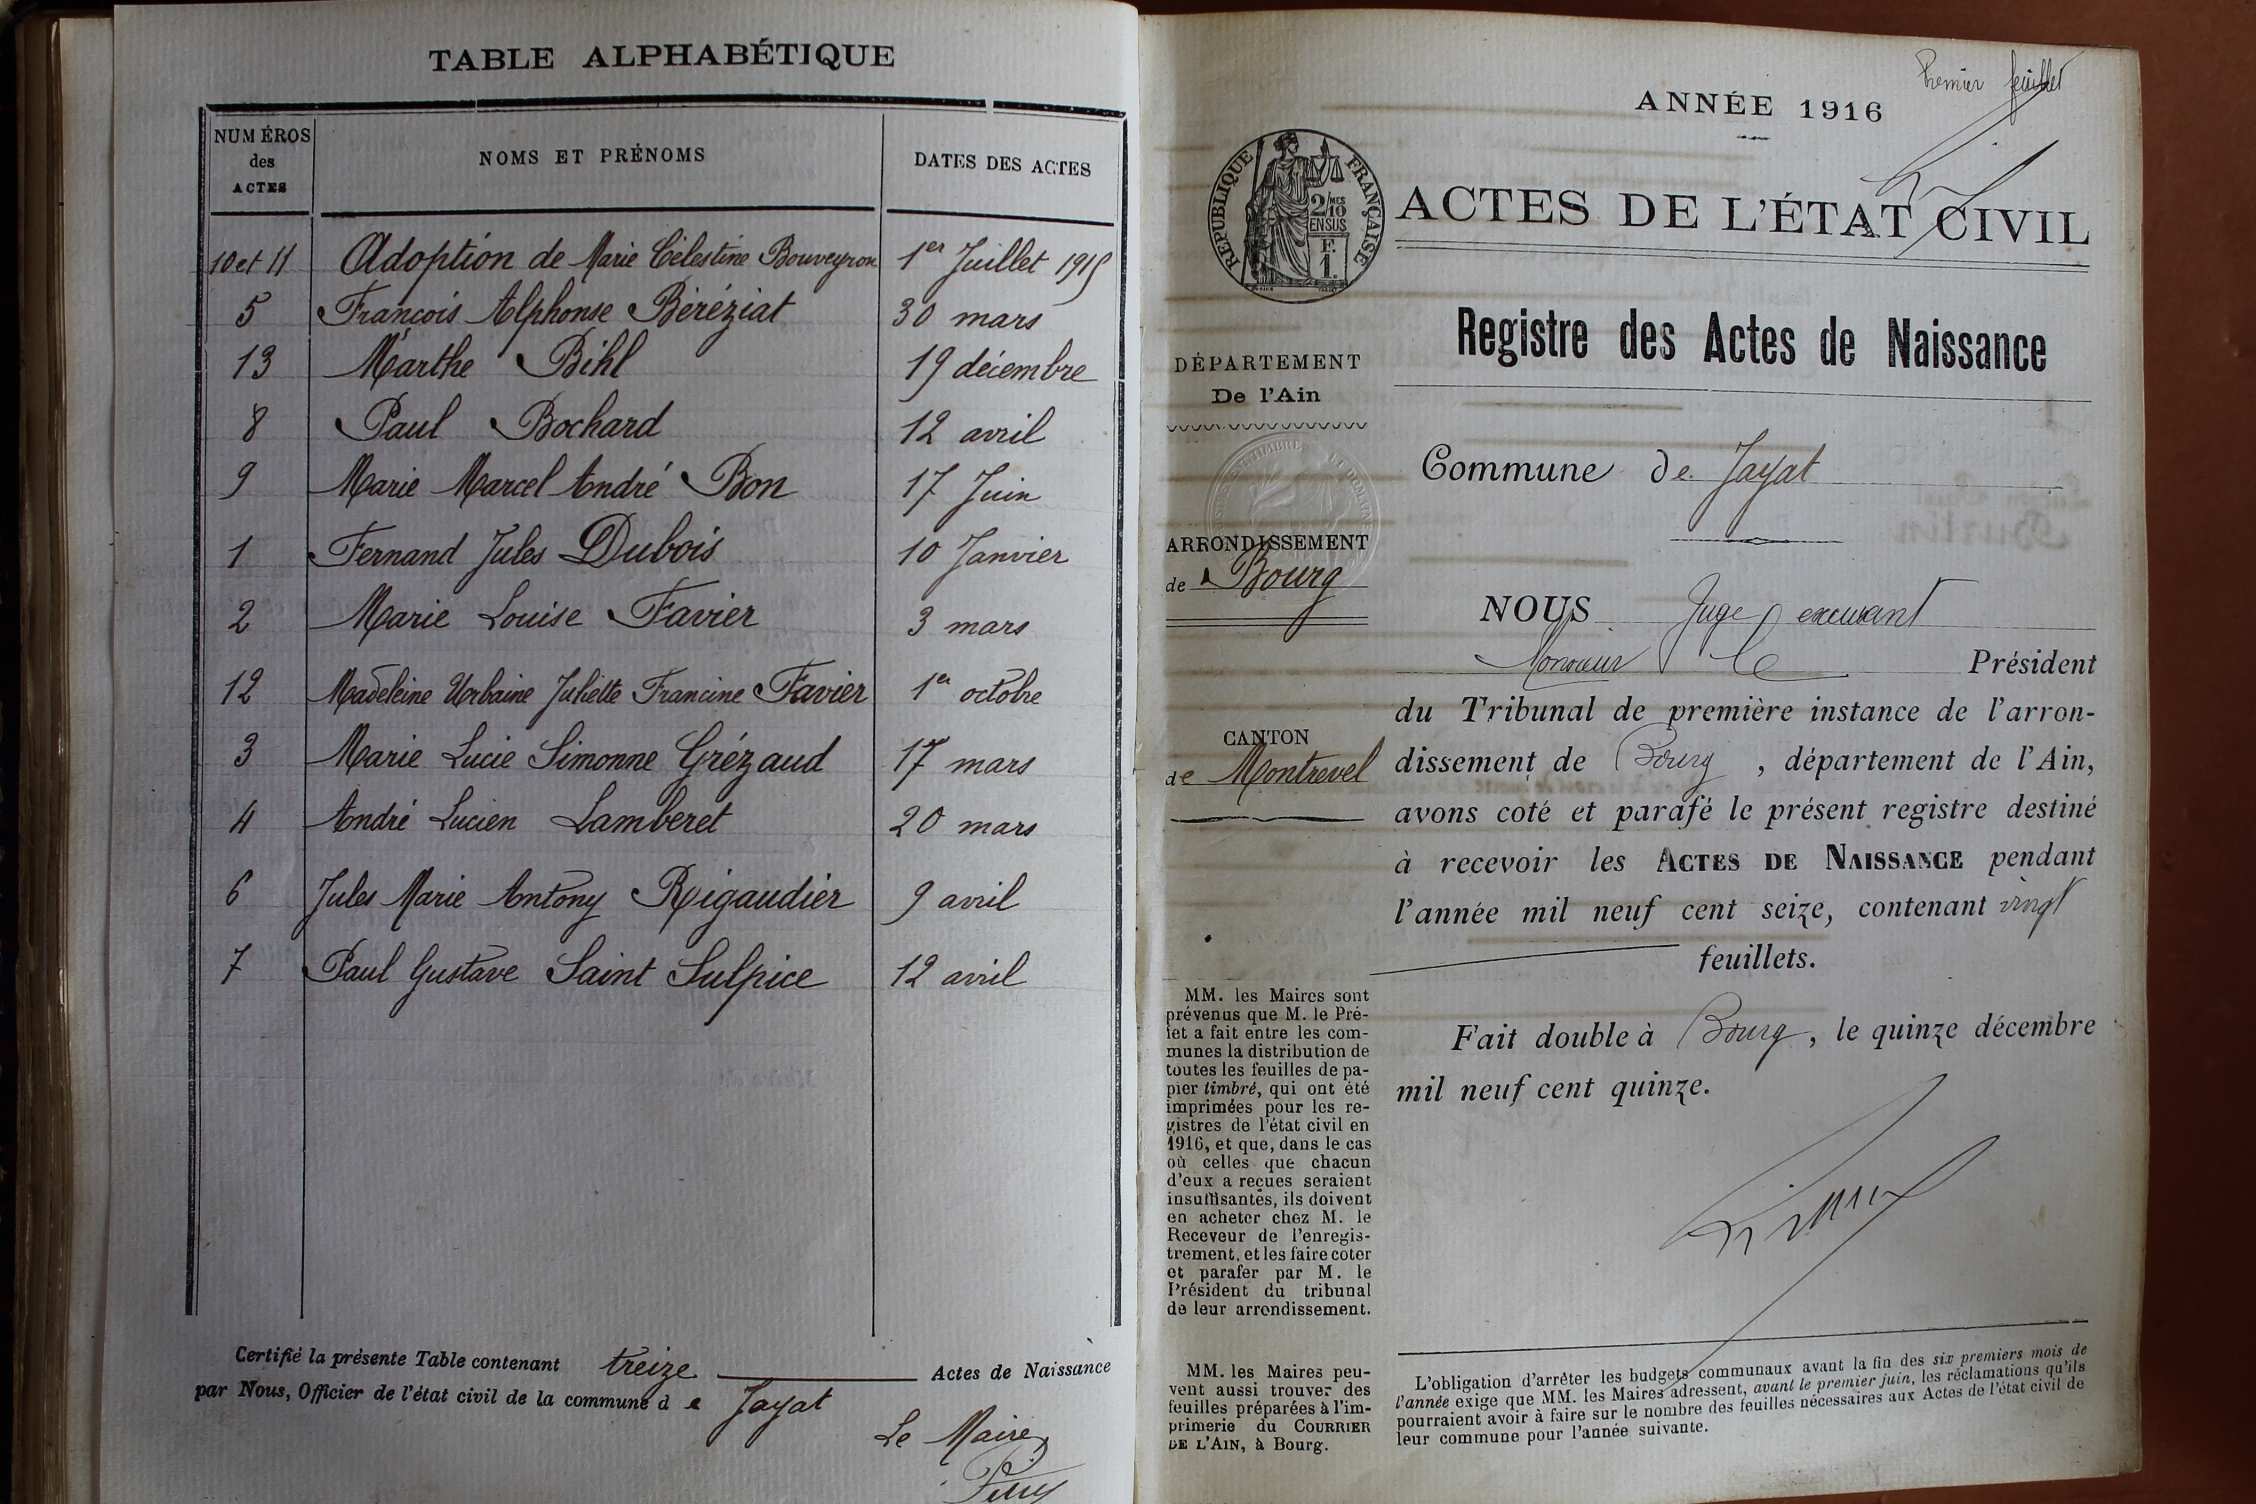 TABLE ALPHABÉTIQUE
NUMÉROS des ACTES NOMS ET PRÉNOMS DATES DES ACTES
10 et 11 Adoption de Marie Célestine Bouveyron 1er Juillet 1915
5 François Alphonse Béréziat 30 mars
13 Marthe Bihl 19 décembre
8 Paul Bochard 12 avril
9 Marie Marcel André Bon 17 Juin
1 Fernand Jules Dubois 10 Janvier
2 Marie Louise Favier 3 mars
12 Madeleine Urbaine Juliette Francine Favier 1er octobre
3 Marie Lucie Simonne Grézaud 17 mars
4 André Lucien Lamberet 20 mars
6 Jules Marie Antony Rigaudier 9 avril
7 Paul Gustave Saint Sulpice 12 avril
Certifié la présente Table contenant treize Actes de Naissance
par Nous, Officier de l'état civil de la commune de Jayat
Le Maire
Premier feuillet
ANNÉE 1916
RÉPUBLIQUE FRANÇAISE
2/10 MES
EN SUS
F.
1.
ACTES DE L'ÉTAT CIVIL
Registre des Actes de Naissance
DÉPARTEMENT
De l'Ain
ARRONDISSEMENT
de Bourg
CANTON
de Montrevel
MM. les Maires sont
prévenus que M. le Pré-
fet a fait entre les com-
munes la distribution de
toutes les feuilles de pa-
pier timbré, qui ont été
imprimées pour les re-
gistres de l'état civil en
1916, et que, dans le cas
où celles que chacun
d'eux a reçues seraient
insuffisantes, ils doivent
en acheter chez M. le
Receveur de l'enregis-
trement, et les faire coter
et parafer par M. le
Président du tribunal
de leur arrondissement.
MM. les Maires peu-
vent aussi trouver des
feuilles préparées à l'im-
primerie du COURRIER
DE L'AIN, à Bourg.
Commune de Jayat
NOUS Juge
Monsieur le Président
du Tribunal de première instance de l'arron-
dissement de Bourg, département de l'Ain,
avons coté et parafé le présent registre destiné
à recevoir les ACTES DE NAISSANCE pendant
l'année mil neuf cent seize, contenant vingt
feuillets.
Fait double à Bourg, le quinze décembre
mil neuf cent quinze.
L'obligation d'arrêter les budgets communaux avant la fin des six premiers mois de
l'année exige que MM. les Maires adressent, avant le premier juin, les réclamations qu'ils
pourraient avoir à faire sur le nombre des feuilles nécessaires aux Actes de l'état civil de
leur commune pour l'année suivante.